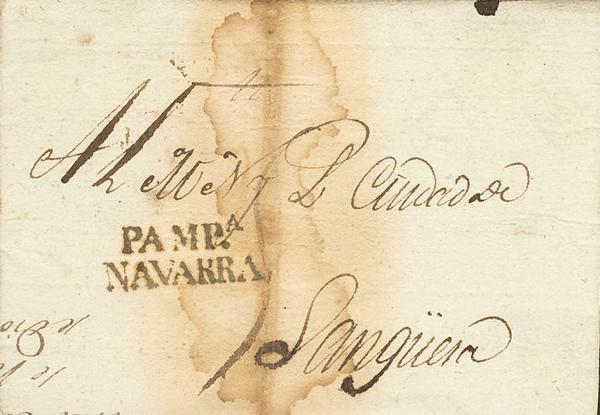 A l M N y L Ciudad de
PAMP.A
NAVARRA
Sangüesa